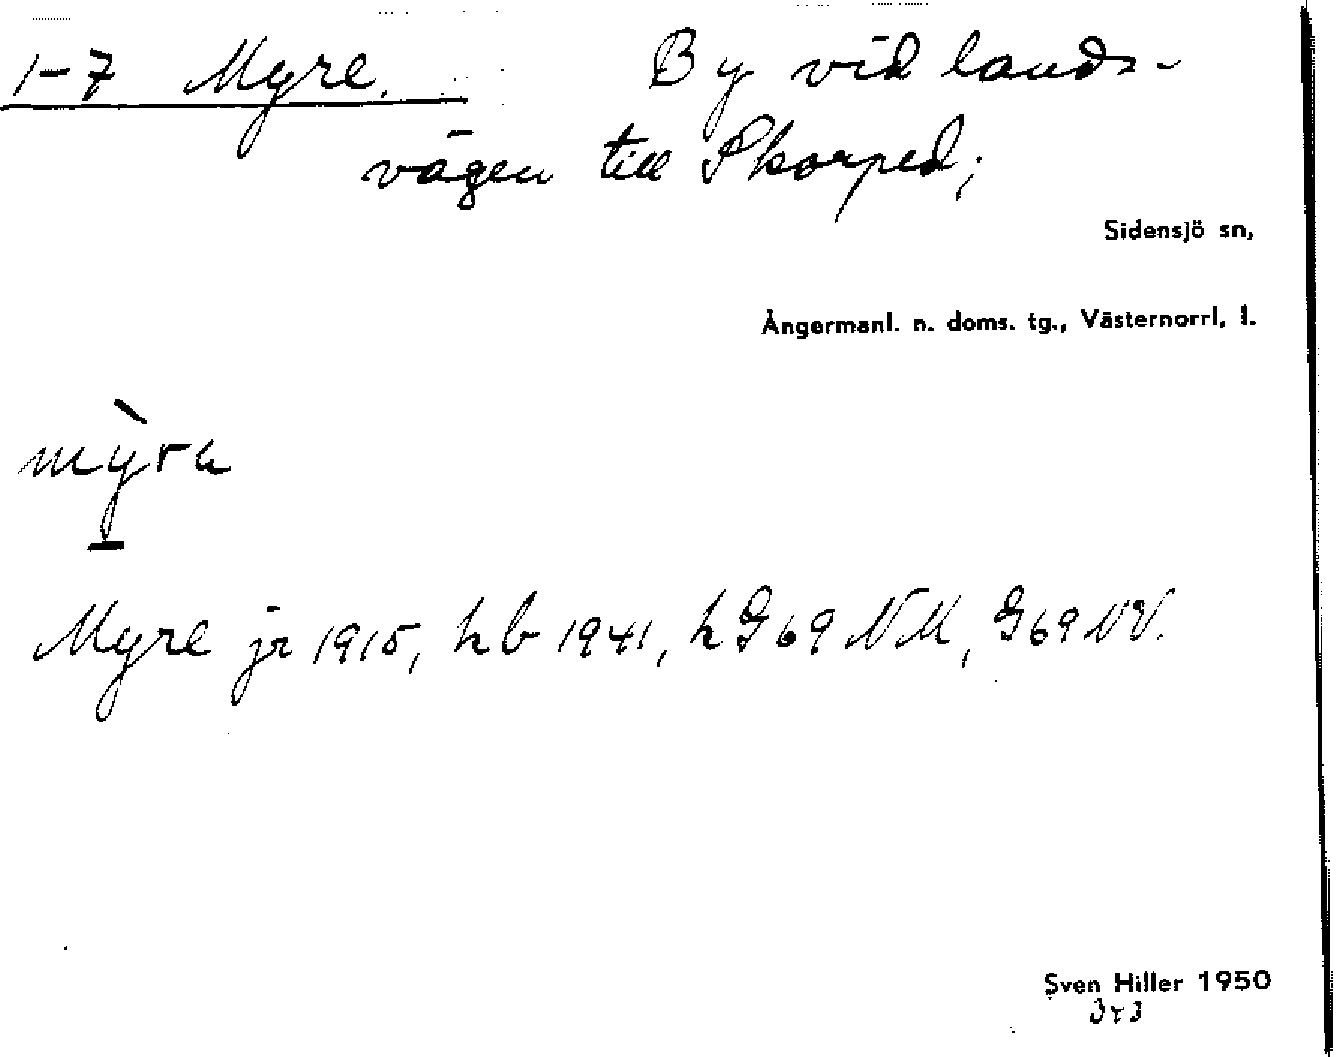 1-7 Myre. By vid lands-
vägen till Skorped;
Sidensjö sn,
Ångermanl. n. doms. tg., Västernorrl. l.
mỳra
Myre jr 1915, hb 1941, hG69 NM, G69 NV.
Sven Hiller 1950